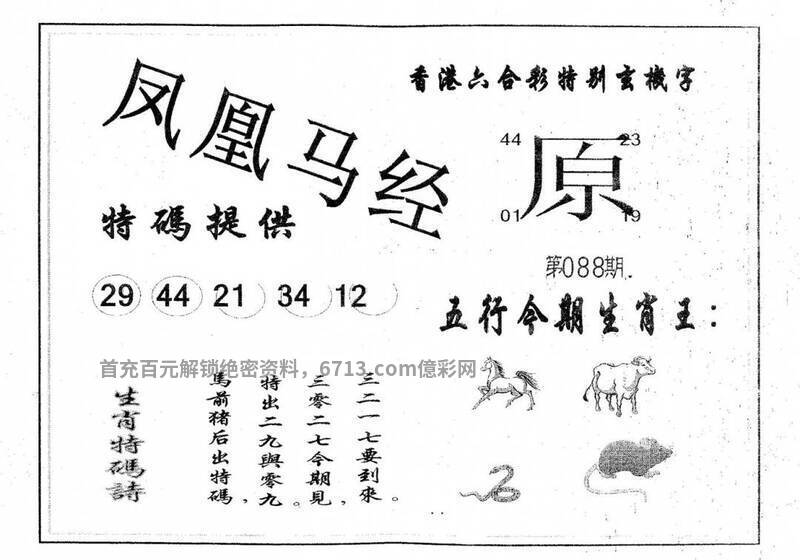 凤凰马经
香港六合彩特别玄機字
44 23
原
01 19
特碼提供
第088期.
29 44 21 34 12
五行今期生肖王：
首充百元解锁绝密资料，6713.com億彩网
生肖特碼詩
三二一七要到來。
三零二七今期見，
特出二九與零九。
馬前猪后出特碼，